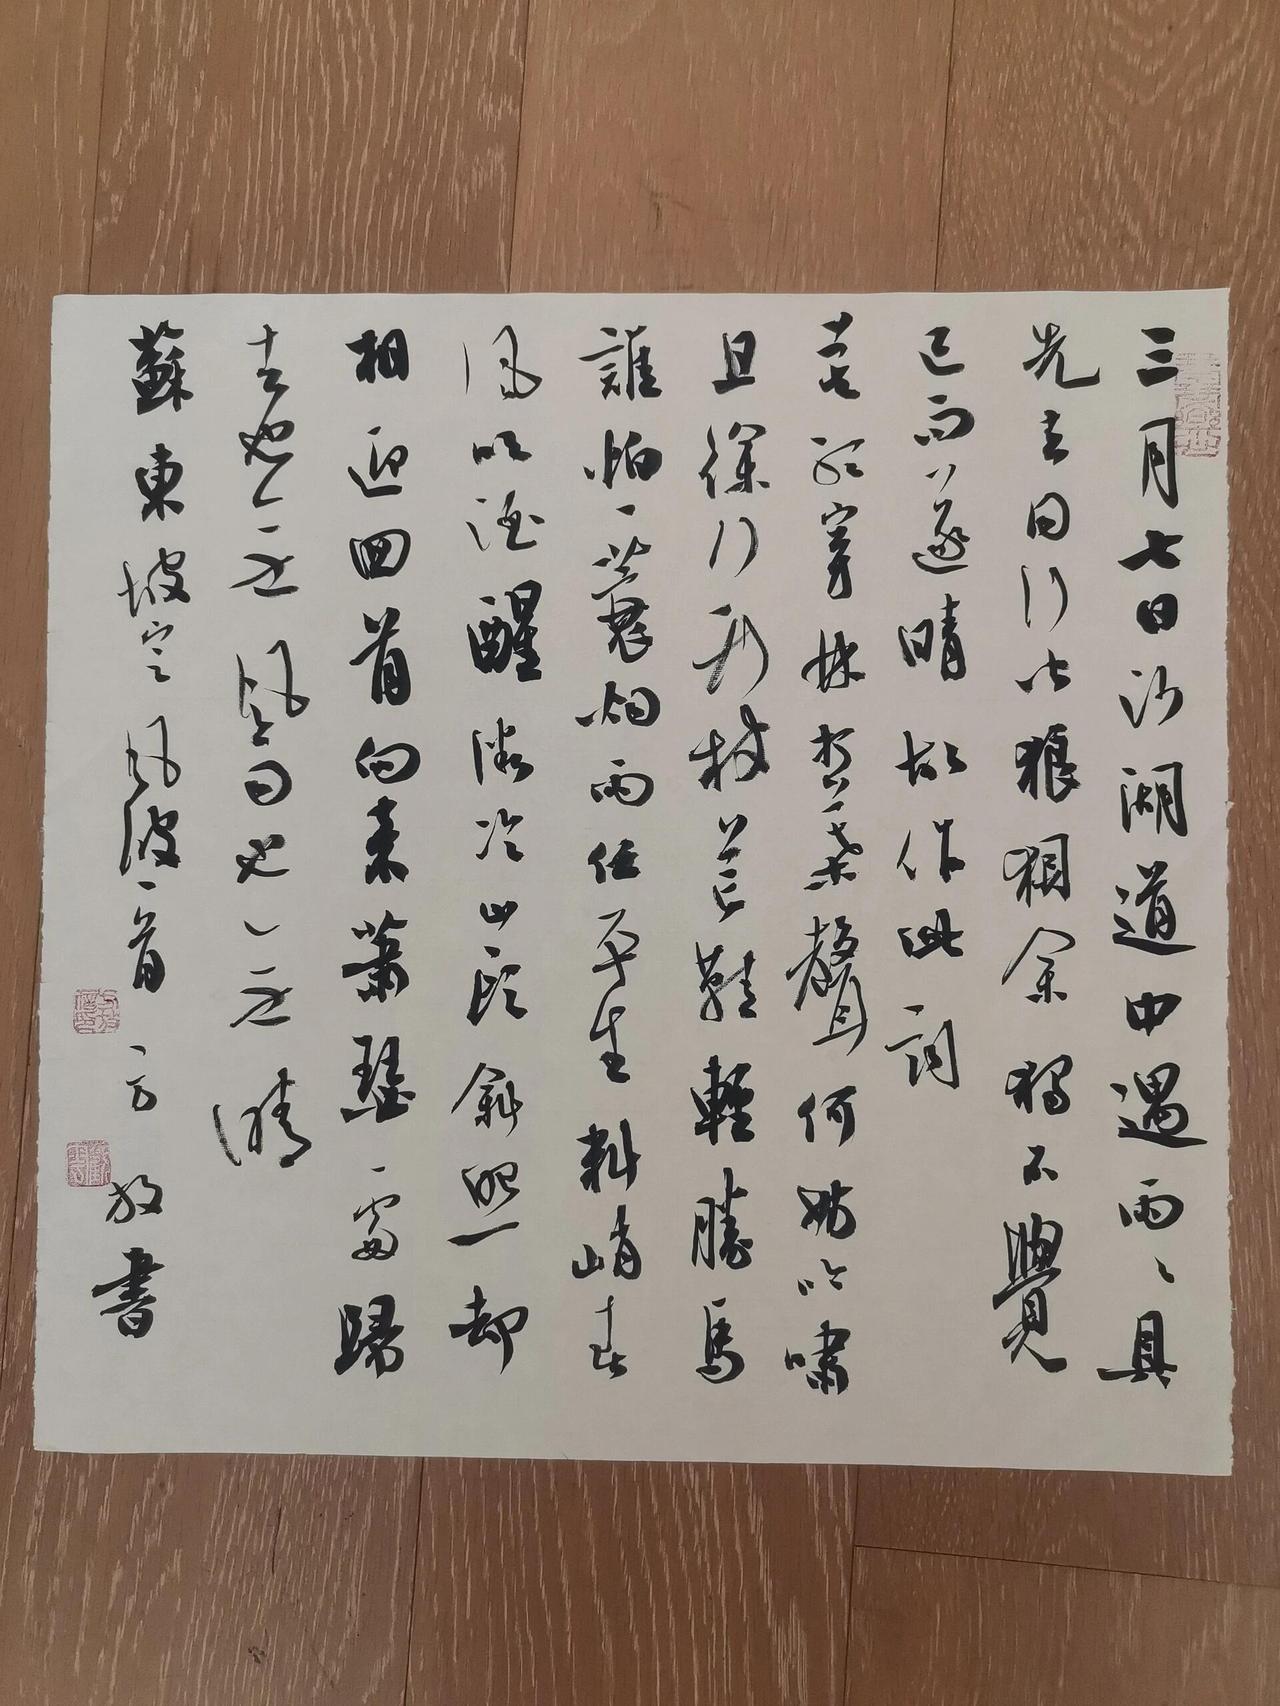 三月七日沙湖道中遇雨〻具
先去同行皆狼狽余獨不覺
已而遂晴故作此詞
莫聽穿林打葉聲何妨吟嘯
且徐行竹杖芒鞋輕勝馬
誰怕一蓑烟雨任平生料峭春
風吹酒醒微冷山頭斜照却
相迎回首向来蕭瑟處歸
去也无風雨也无晴
蘇東坡定風波一首 方放書